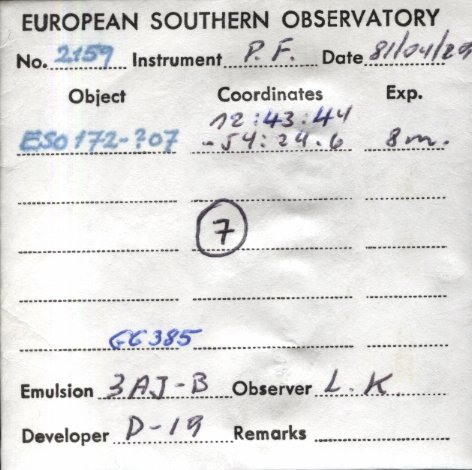 EUROPEAN SOUTHERN OBSERVATORY
No. 2159 Instrument P.F. Date 81/04/29
Object Coordinates Exp.
12:43:44
ESO 172-?07 -54:24.6 8m.
7
GG385
Emulsion 3AJ-B Observer L.K.
Developer D-19 Remarks